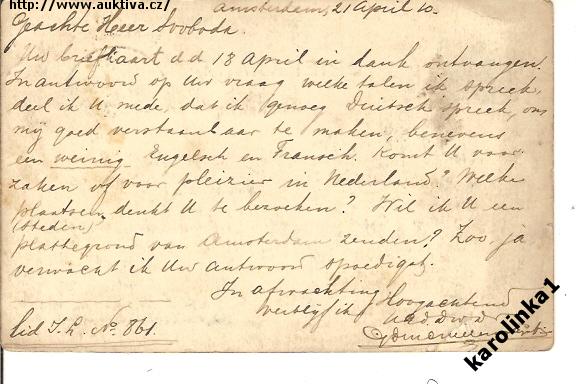 http://www.auktiva.cz/
Amsterdam, 21 April 10.
Geachte Heer Svoboda.
Uw briefkaart d.d 18 April in dank ontvangen.
In antwoord op Uw vraag welke talen ik spreek,
deel ik U mede, dat ik genoeg Duitsch spreek, om
mij goed verstaanbaar te maken, benevens
een weinig Engelsch en Fransch. Komt U voor
zaken of voor pleizier in Nederland? Welke
plaatsen denkt U te bezoeken? Wil ik U een
(steden)
plattegrond van Amsterdam zenden? Zoo ja
verwacht ik Uw antwoord spoedigst.
In afwachting
verblijf ik Hoogachtend
Uw d.w.d.
Lid I.L. No. 861.
karolinka1